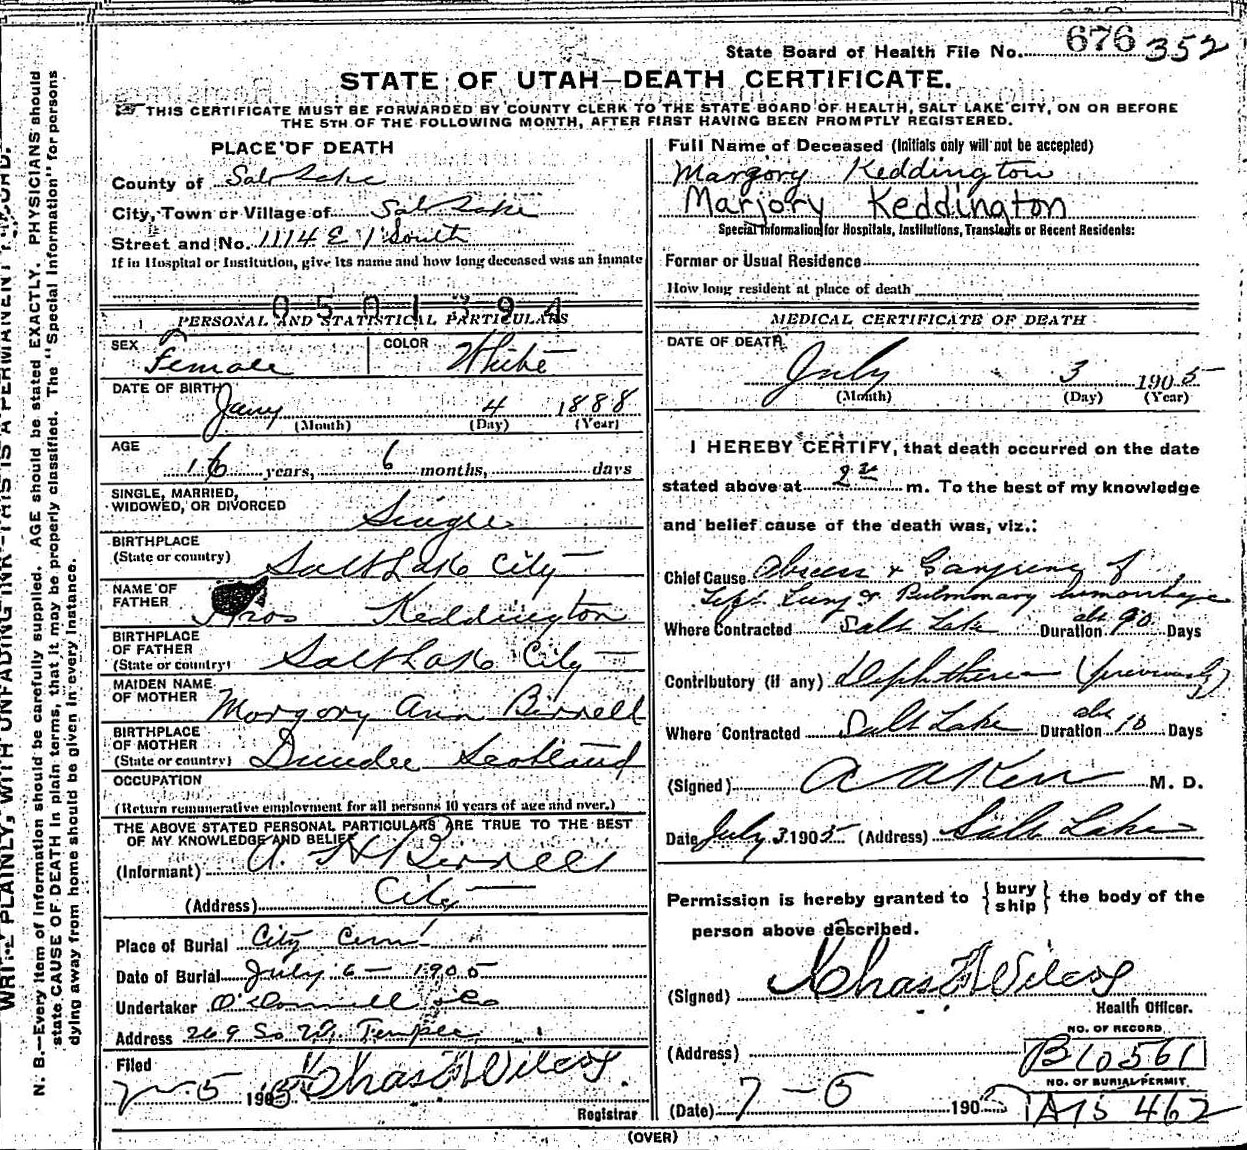 State Board of Health File No. 676 352
STATE OF UTAH—DEATH CERTIFICATE.
THIS CERTIFICATE MUST BE FORWARDED BY COUNTY CLERK TO THE STATE BOARD OF HEALTH, SALT LAKE CITY, ON OR BEFORE
THE 5TH OF THE FOLLOWING MONTH, AFTER FIRST HAVING BEEN PROMPTLY REGISTERED.
PLACE OF DEATH
County of Salt Lake
City, Town or Village of Salt Lake
Street and No. 1114 E 1 South
If in Hospital or Institution, give its name and how long deceased was an inmate
0501394
PERSONAL AND STATISTICAL PARTICULARS
SEX Female COLOR White
DATE OF BIRTH Jany 4 1888
(Month) (Day) (Year)
AGE
16 years, 6 months, days
SINGLE, MARRIED,
WIDOWED, OR DIVORCED Single
BIRTHPLACE
(State or country) Salt Lake City
NAME OF
FATHER Keddington
BIRTHPLACE
OF FATHER
(State or country) Salt Lake City
MAIDEN NAME
OF MOTHER Morgory Ann Birrell
BIRTHPLACE
OF MOTHER
(State or country) Dundee Scotland
OCCUPATION
(Return remunerative employment for all persons 10 years of age and over.)
THE ABOVE STATED PERSONAL PARTICULARS ARE TRUE TO THE BEST
OF MY KNOWLEDGE AND BELIEF
(Informant) A. H Birrell
(Address) City
Place of Burial City Cem
Date of Burial July 6 - 1905
Undertaker O'Donnell & Co
Address 269 So W. Temple
Filed
7-5 1905 Chas F Wilcox
Registrar
Full Name of Deceased (Initials only will not be accepted)
Margory Keddington
Marjory Keddington
Special Information for Hospitals, Institutions, Transients or Recent Residents:
Former or Usual Residence
How long resident at place of death
MEDICAL CERTIFICATE OF DEATH
DATE OF DEATH
July 3 1905
(Month) (Day) (Year)
I HEREBY CERTIFY, that death occurred on the date
stated above at 2 m. To the best of my knowledge
and belief cause of the death was, viz.:
Chief Cause Abscess & Gangrene of
Left Lung & Pulmonary hemorhage
Where Contracted Salt Lake Duration abt 90 Days
Contributory (if any) Diphtheria (previously)
Where Contracted Salt Lake Duration abt 10 Days
(Signed) A A Kerr M. D.
Date July 3 1905 (Address) Salt Lake
Permission is hereby granted to { bury ship } the body of the
person above described.
(Signed) Chas F Wilcox
Health Officer.
(Address)
NO. OF RECORD
B10561
NO. OF BURIAL PERMIT
A15462
(Date) 7-5 1905
(OVER)
WRITE PLAINLY, WITH UNFADING INK—THIS IS A PERMANENT RECORD.
N. B.—Every item of information should be carefully supplied. AGE should be stated EXACTLY. PHYSICIANS should
state CAUSE OF DEATH in plain terms, that it may be properly classified. The "Special Information" for persons
dying away from home should be given in every instance.